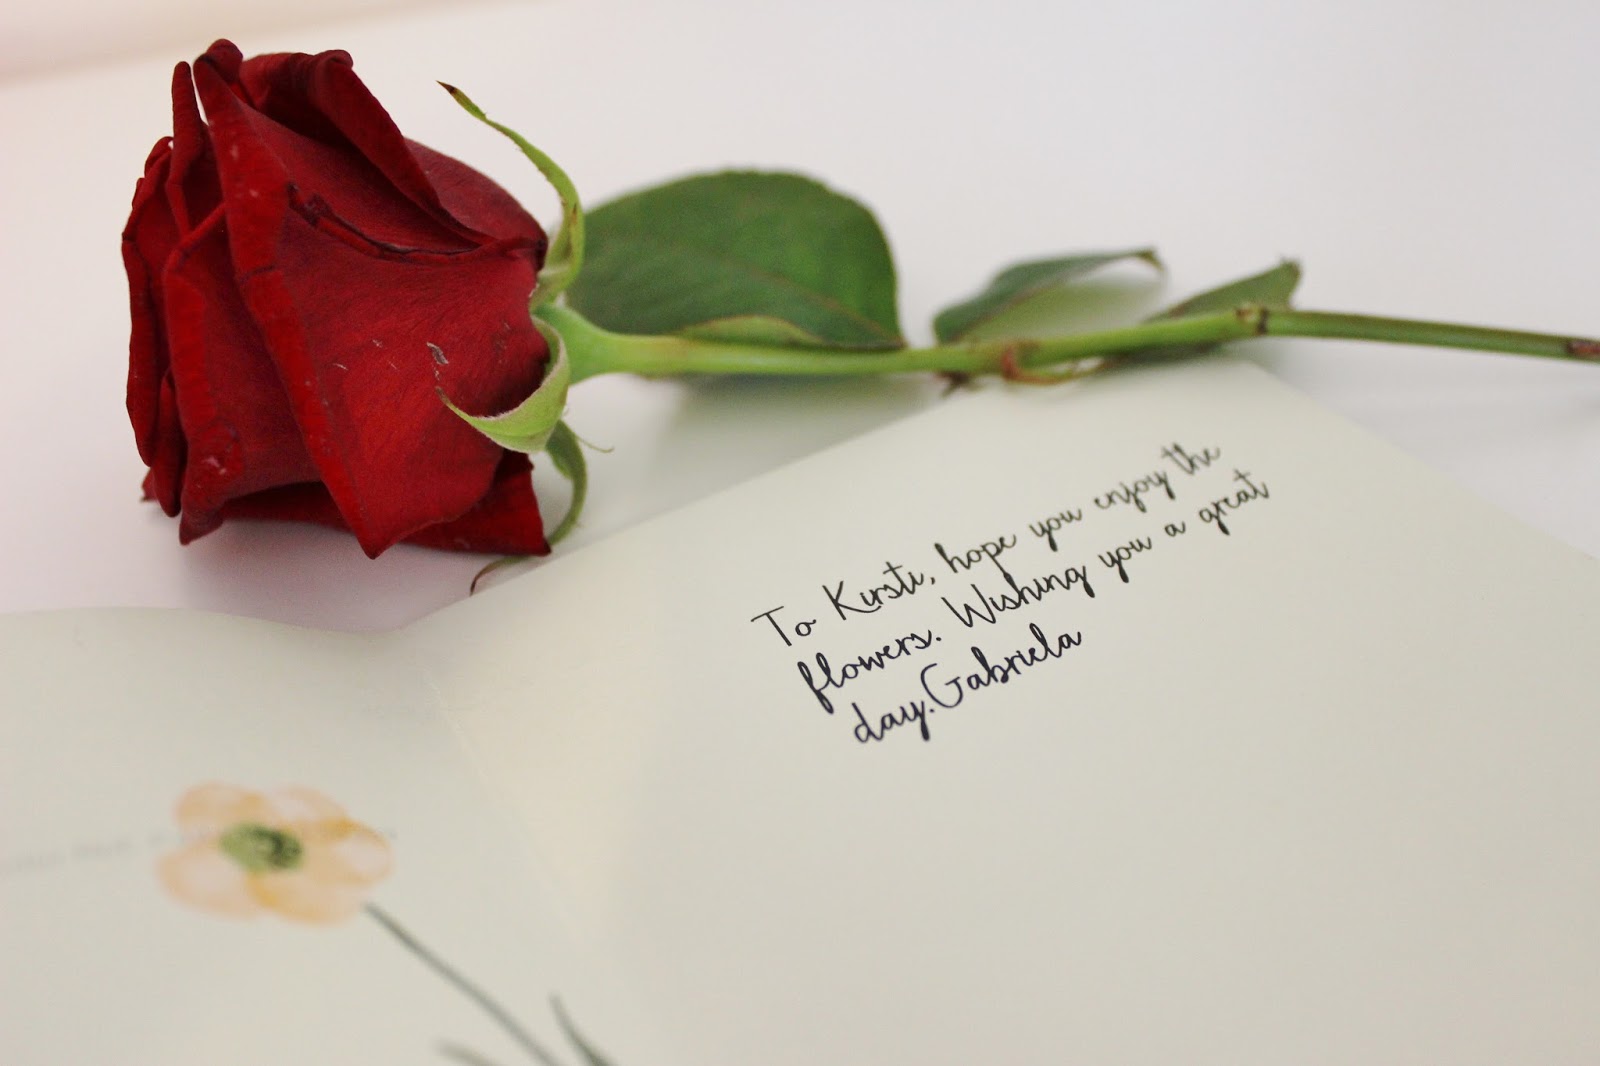 To Kirsti, hope you enjoy the
flowers. Wishing you a great
day.Gabriela